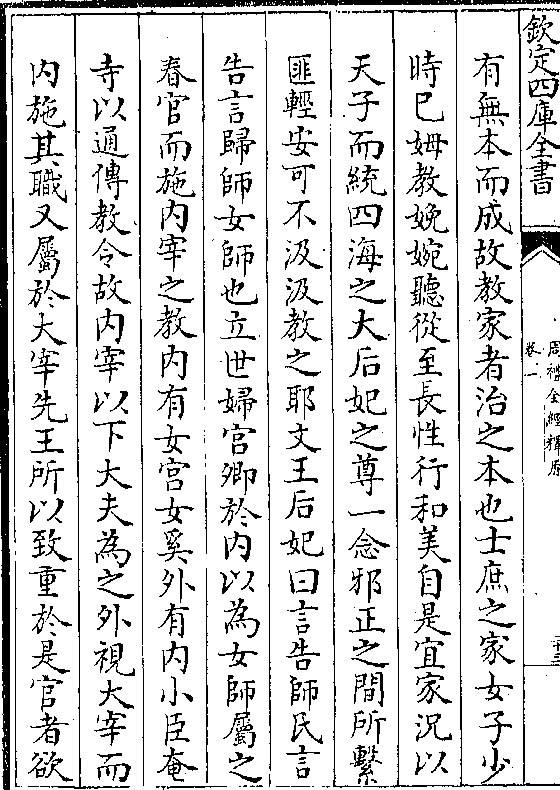 欽定四庫全書
周禮全經釋原
卷一
有無本而成故教家者治之本也士庶之家女子少
時已姆教娩婉聽從至長性行和美自是宜家況以
天子而統四海之大后妃之尊一念邪正之間所繫
匪輕安可不汲汲教之耶文王后妃曰言告師民言
告言歸師女師也立世婦宫卿於内以為女師屬之
春官而施内宰之教内有女宫女奚外有内小臣奄
寺以通傳教令故内宰以下大夫為之外視大宰而
内施其職又屬於大宰先王所以致重於是官者欲